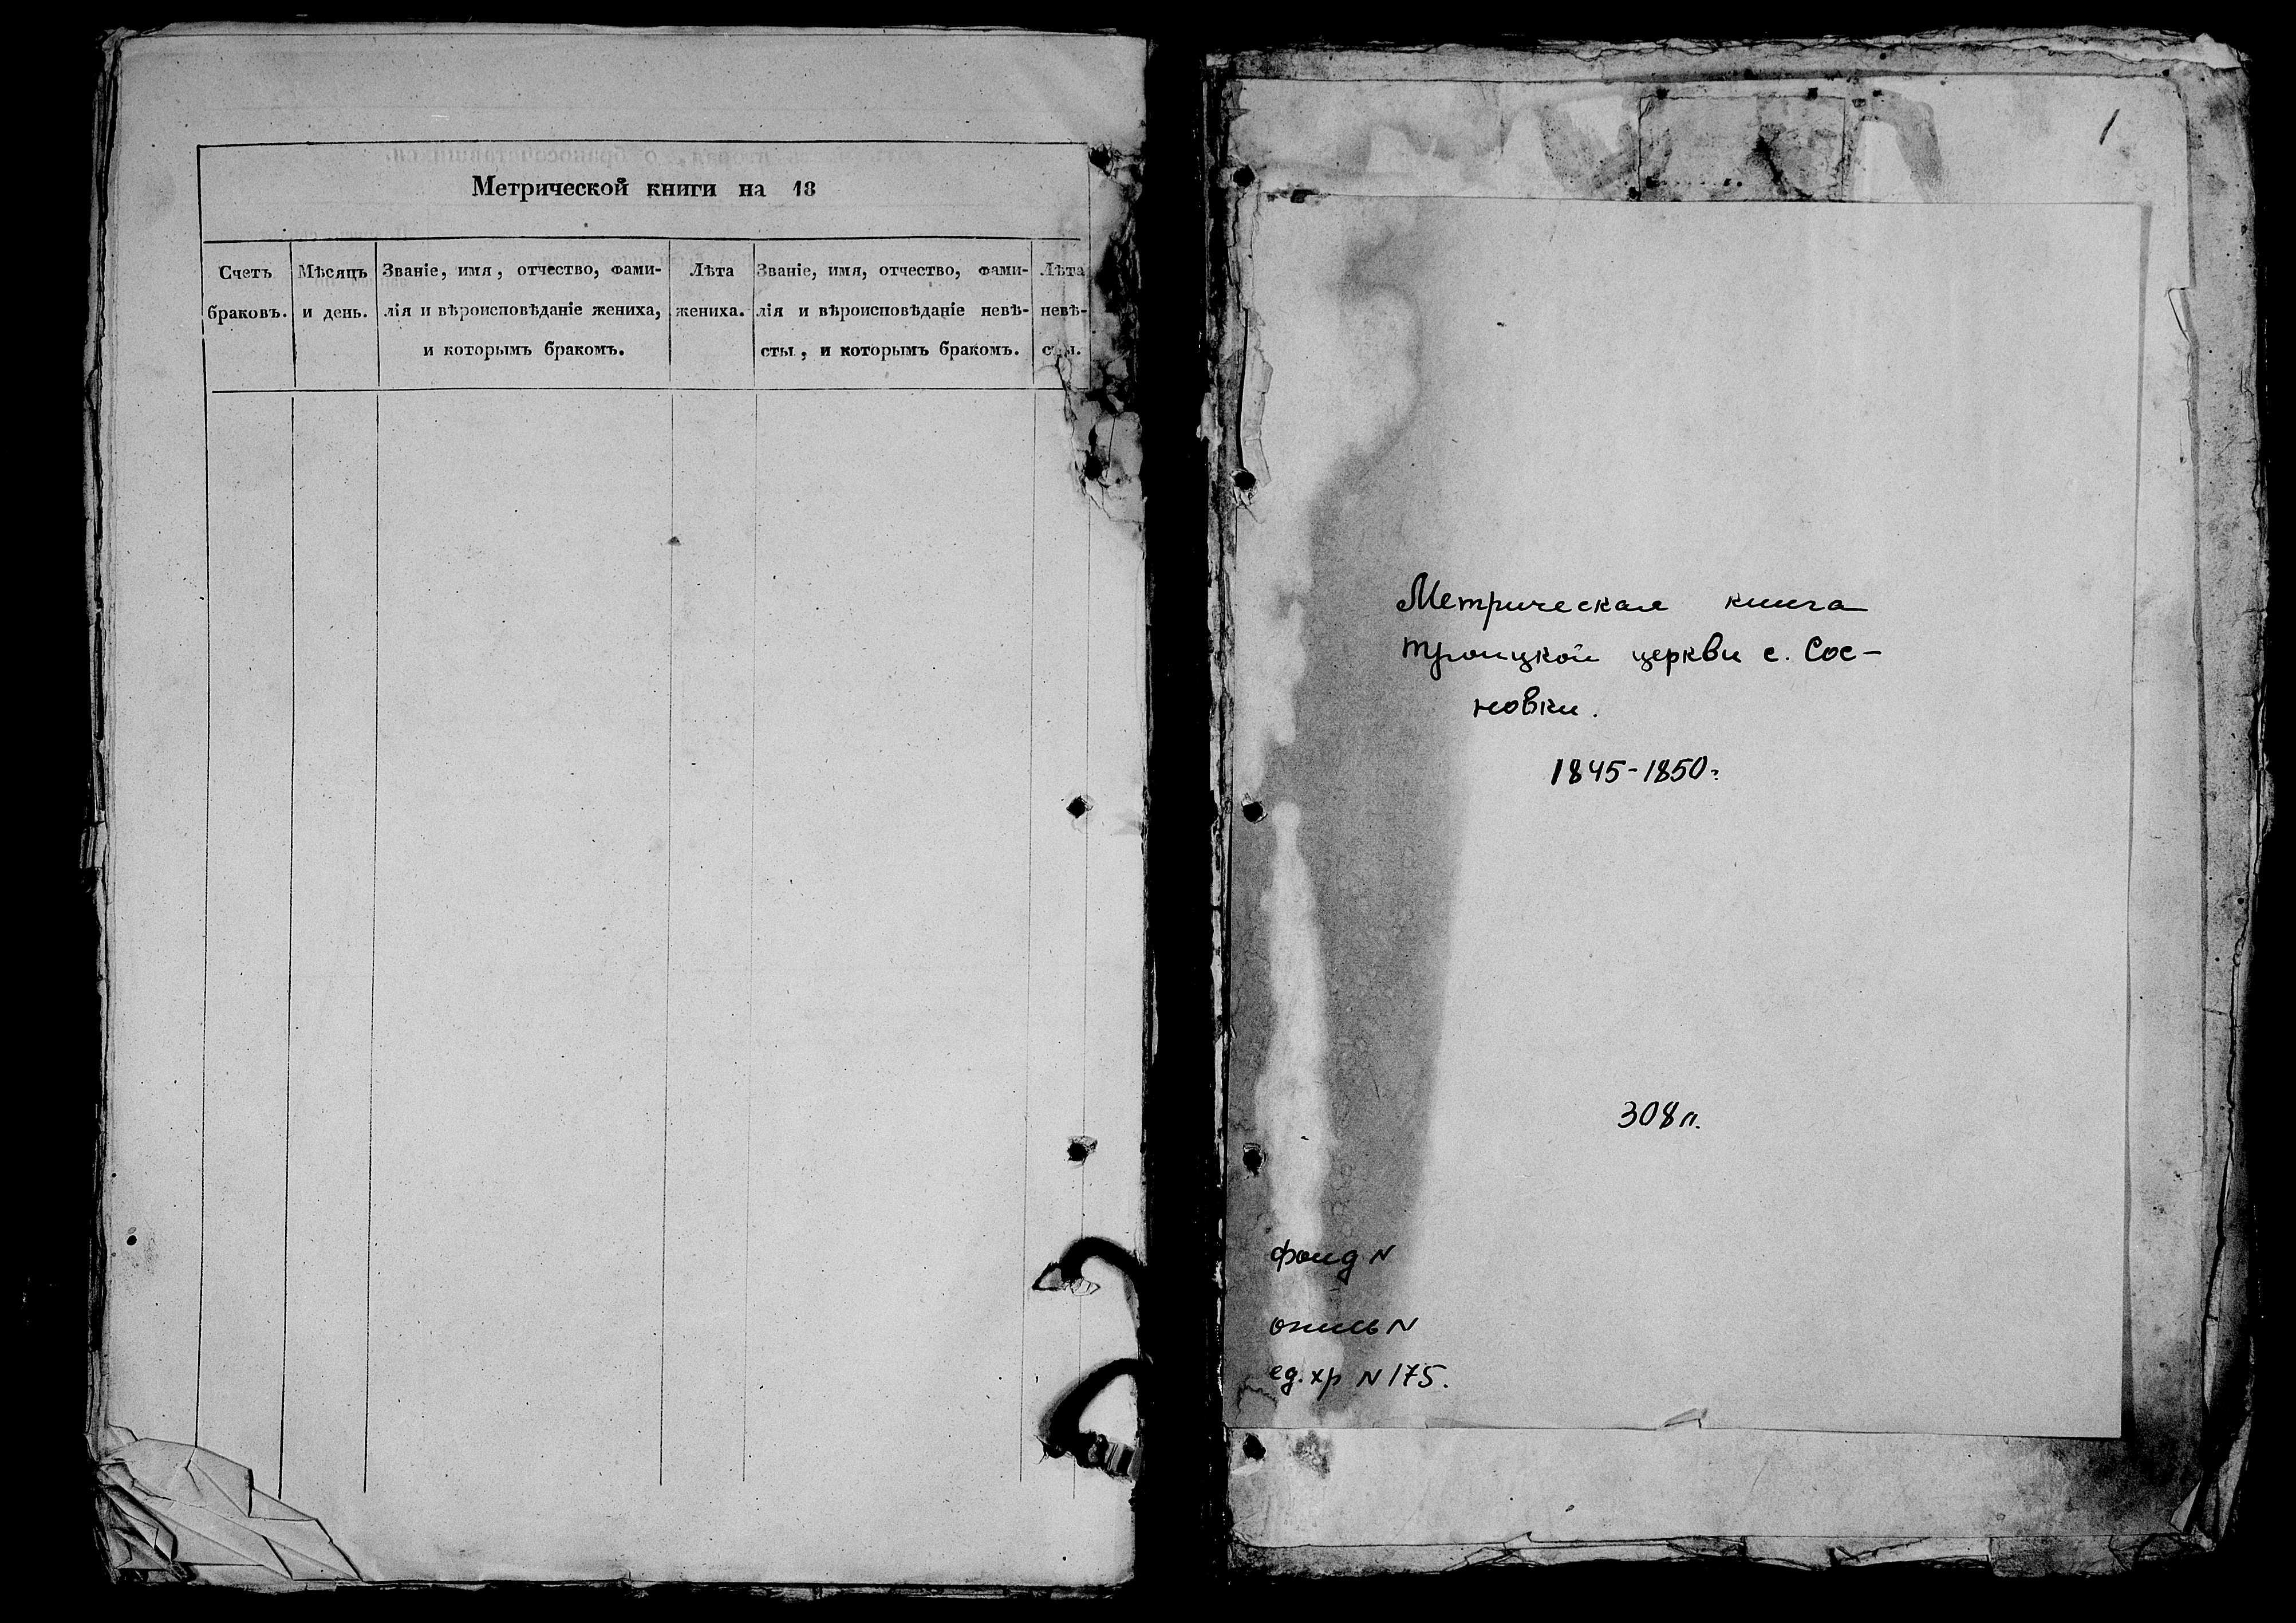 Метрической книги на 18
Счетъ браковъ.
Мѣсяцъ и день.
Званіе, имя, отчество, фами-
лія и вѣроисповѣданіе жениха,
и которымъ бракомъ.
Лѣта
жениха.
Званіе, имя, отчество, фами-
лія и вѣроисповѣданіе невѣ-
сты, и которымъ бракомъ.
Лѣта
невѣ-
сты.
1
Метрическая книга
Троицкой церкви с. Сос-
новки.
1845-1850г
308л.
фонд N
опись N
ед.хр N 175.